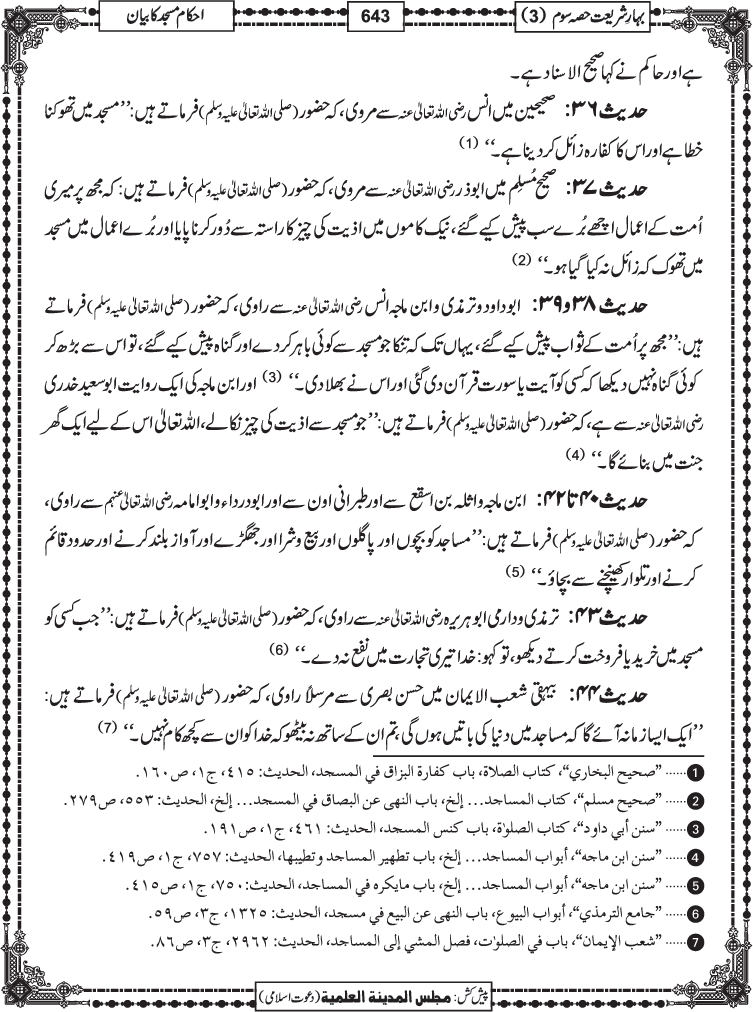 بہارِ شریعت حصہ سوم (3)
643
احکام مسجد کا بیان
ہے اور حاکم نے کہا صحیح الاسناد ہے۔
حدیث ۳۶: صحیحین میں انس رضی اللہ تعالیٰ عنہ سے مروی، کہ حضور (صلی اللہ تعالیٰ علیہ وسلم) فرماتے ہیں: ’’مسجد میں تھوکنا
خطا ہے اور اس کا کفارہ زائل کر دینا ہے۔‘‘ (1)
حدیث ۳۷: صحیح مُسلِم میں ابوذر رضی اللہ تعالیٰ عنہ سے مروی، کہ حضور (صلی اللہ تعالیٰ علیہ وسلم) فرماتے ہیں: کہ مجھ پر میری
اُمت کے اعمال اچھے بُرے سب پیش کیے گئے، نیک کاموں میں اذیت کی چیز کا راستہ سے دُور کرنا پایا اور بُرے اعمال میں مسجد
میں تھوک کہ زائل نہ کیا گیا ہو۔‘‘ (2)
حدیث ۳۸ و ۳۹: ابو داود و ترمذی و ابن ماجہ انس رضی اللہ تعالیٰ عنہ سے راوی، کہ حضور (صلی اللہ تعالیٰ علیہ وسلم) فرماتے
ہیں: ’’مجھ پر اُمت کے ثواب پیش کیے گئے، یہاں تک کہ تنکا جو مسجد سے کوئی باہر کر دے اور گناہ پیش کیے گئے، تو اس سے بڑھ کر
کوئی گناہ نہیں دیکھا کہ کسی کو آیت یا سورت قرآن دی گئی اور اس نے بھلا دی۔‘‘ (3) اور ابن ماجہ کی ایک روایت ابوسعید خدری
رضی اللہ تعالیٰ عنہ سے ہے، کہ حضور (صلی اللہ تعالیٰ علیہ وسلم) فرماتے ہیں: ’’جو مسجد سے اذیت کی چیز نکالے، اللہ تعالیٰ اس کے لیے ایک گھر
جنت میں بنائے گا۔‘‘ (4)
حدیث ۴۰ تا ۴۲: ابن ماجہ واثلہ بن اسقع سے اور طبرانی اون سے اور ابو درداء و ابو امامہ رضی اللہ تعالیٰ عنہم سے راوی،
کہ حضور (صلی اللہ تعالیٰ علیہ وسلم) فرماتے ہیں: ’’مساجد کو بچوں اور پاگلوں اور بیع و شرا اور جھگڑے اور آواز بلند کرنے اور حدود قائم
کرنے اور تلوار کھینچنے سے بچاؤ۔‘‘ (5)
حدیث ۴۳: ترمذی و دارمی ابو ہریرہ رضی اللہ تعالیٰ عنہ سے راوی، کہ حضور (صلی اللہ تعالیٰ علیہ وسلم) فرماتے ہیں: ’’جب کسی کو
مسجد میں خرید یا فروخت کرتے دیکھو، تو کہو: خدا تیری تجارت میں نفع نہ دے۔‘‘ (6)
حدیث ۴۴: بیہقی شعب الایمان میں حسن بصری سے مرسلاً راوی، کہ حضور (صلی اللہ تعالیٰ علیہ وسلم) فرماتے ہیں:
’’ایک ایسا زمانہ آئے گا کہ مساجد میں دنیا کی باتیں ہوں گی، تم ان کے ساتھ نہ بیٹھو کہ خدا کو ان سے کچھ کام نہیں۔‘‘ (7)
1 ...... ”صحيح البخاري“، كتاب الصلاة، باب كفارة البزاق في المسجد، الحديث: ٤١٥، ج١، ص١٦٠.
2 ...... ”صحيح مسلم“، كتاب المساجد... إلخ، باب النهى عن البصاق في المسجد... إلخ، الحديث: ٥٥٣، ص٢٧٩.
3 ...... ”سنن أبي داود“، كتاب الصلوٰة، باب كنس المسجد، الحديث: ٤٦١، ج١، ص١٩١.
4 ...... ”سنن ابن ماجه“، أبواب المساجد... إلخ، باب تطهير المساجد و تطييبها، الحديث: ٧٥٧، ج١، ص٤١٩.
5 ...... ”سنن ابن ماجه“، أبواب المساجد... إلخ، باب مايكره في المساجد، الحديث: ٧٥٠، ج١، ص٤١٥.
6 ...... ”جامع الترمذي“، أبواب البيوع، باب النهى عن البيع في مسجد، الحديث: ١٣٢٥، ج٣، ص٥٩.
7 ...... ”شعب الإيمان“، باب في الصلوٰت، فصل المشي إلى المساجد، الحديث: ٢٩٦٢، ج٣، ص٨٦.
پیش کش: مجلس المدينة العلمية (دعوت اسلامی)